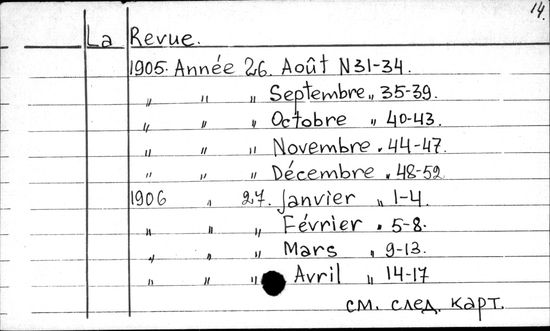 14.
La Revue.
1905. Année 26. Août N31-34.
" " " Septembre " 35-39.
" " " Octobre " 40-43.
" " " Novembre " 44-47.
" " " Décembre " 48-52
1906 " 27. Janvier " 1-4.
" " " Février " 5-8.
" " " Mars " 9-13.
" " " Avril " 14-17
см. след. карт.